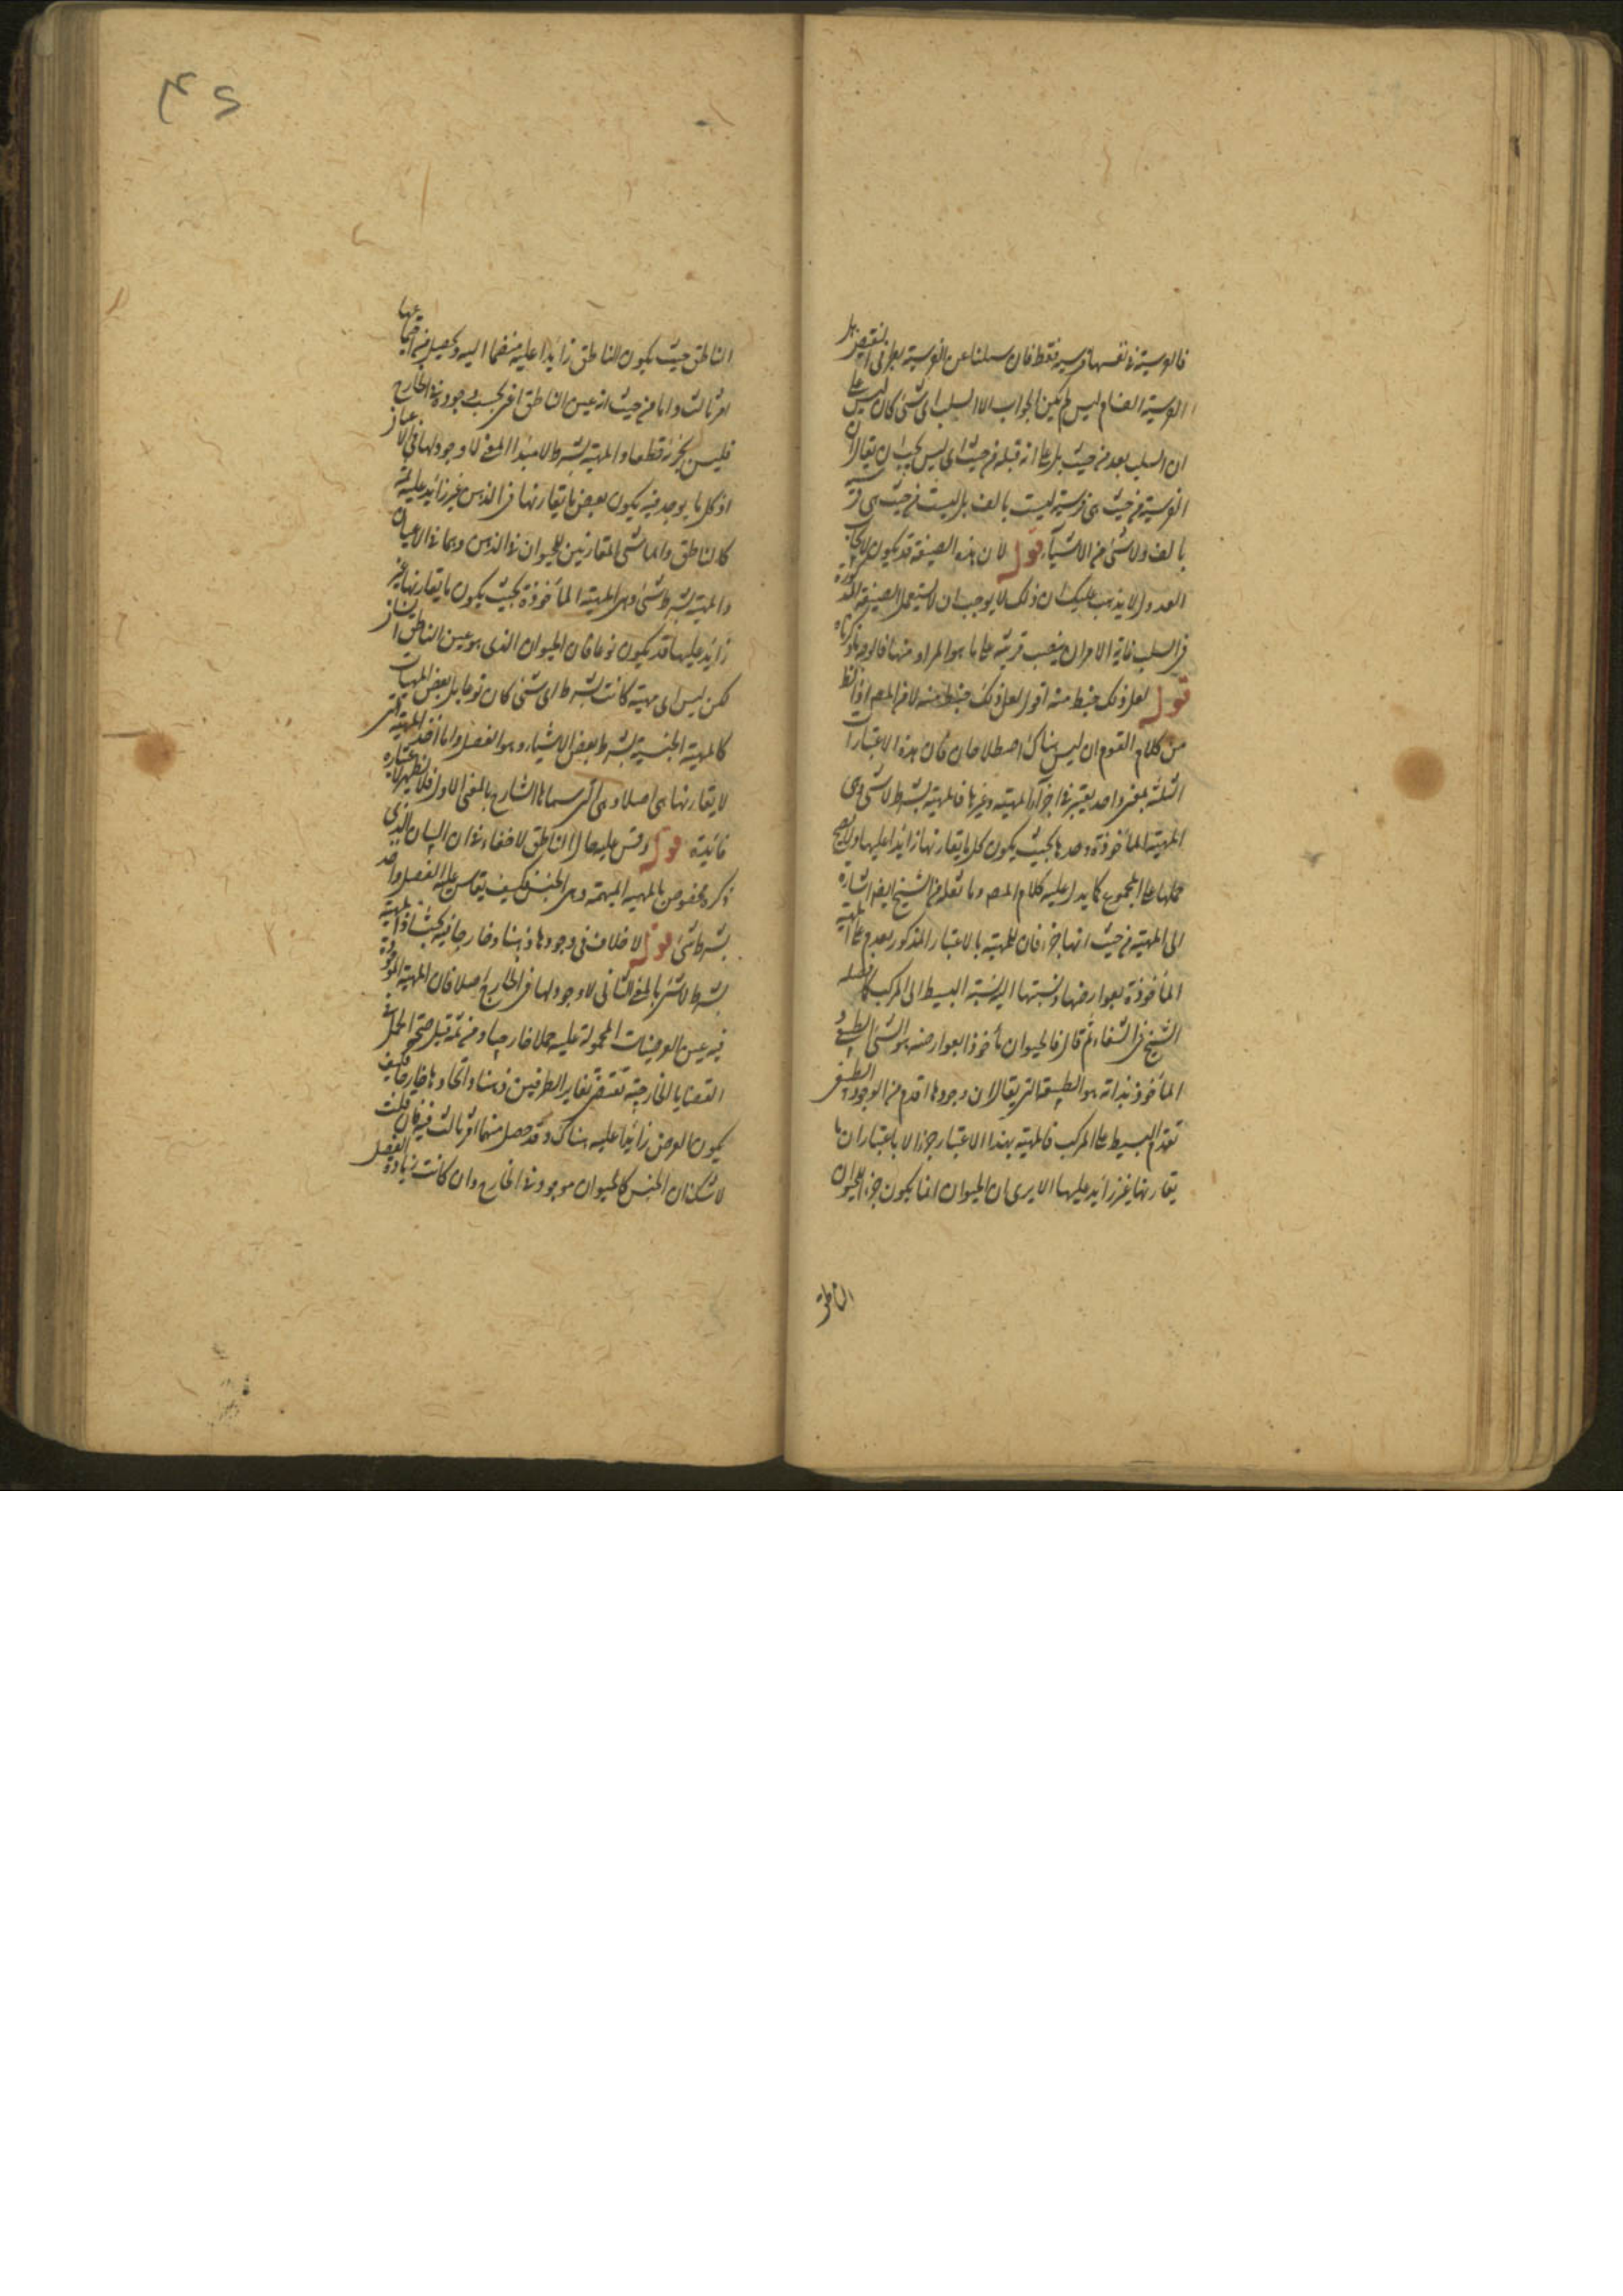 فالفرسية في نفسها فرسية فقط فان سئلنا عن الفرسية بطرفي النقيض هل
الفرسية الف ام ليس لم يكن الجواب الا السلب اى شئ كان ليس على
ان السلب بعد من حيث بل على انه قبله من حيث اى ليس يجب ان يقال ان
الفرسية من حيث هى فرسية ليست بالف بل ليست من حيث هى فرسية
بالف ولا شئ من الاشياء قوله لان هذه الصيغة قد يكون لايجاب
العدول لا يذهب عليك ان ذلك لا يوجب ان لا يستعمل الصيغة المذكورة
فى السلب غاية الامر ان ينصب قرينة على ما هو المراد منها فالوجه ما ذكرناه
قوله لعل ذلك خبط منه اقول لعل ذلك خبط منه لا من المصر اذ الظ
من كلام القوم ان ليس هناك اصطلاحان فان هذه الاعتبارات
الثلثة بمعنى واحد يعتبر فى اجزاء المهية وغيرها فالمهية بشرط لا شئ وهى
المهية المأخوذة وحدها بحيث يكون كل ما يقارنها زائدا عليها ولا يصح
حملها على المجموع كما يدل عليه كلام المصر وما نقله من الشيخ ايضا اشارة
الى المهية من حيث انها جزء فان المهية بالاعتبار المذكور يقدم على المهية
المأخوذة بعوارضها ونسبتها اليه نسبة البسيط الى المركب كما فصله
الشيخ فى الشفاء ثم قال فالحيوان مأخوذا بعوارضه هو الشئ الطبيعى و
المأخوذ بذاته هو الطبيعة التى يقال ان وجودها اقدم من الوجود الطبيعى
تقدم البسيط على المركب فالمهية بهذا الاعتبار جزء الا باعتبار ان ما
يقارنها غير زائد عليها الا يرى ان الحيوان انما يكون جزء الحيوان
الناطق
٤٥
الناطق حيث يكون الناطق زائدا عليه منضما اليه ويحصل من اجتماعهما
امر ثالث واما من حيث انه عين الناطق اى بحسب وجوده فى الخارج
فليس بجزئه قطعا والمهية بشرط لا بهذا المعنى لا وجود لها فى الاعيان
اذ كل ما يوجد فيه يكون بعض ما يقارنها فى الذهن غير زائد عليه
كالناطق والماشى المقارنين للحيوان فى الذهن وهما فى الاعيان
والمهية بشرط شئ وهى المهية المأخوذة بحيث يكون ما يقارنها غير
زائد عليها قد يكون نوعا فان الحيوان الذى هو عين الناطق انسان
لكن ليس اى مهية كانت بشرط اى شئ كان نوعا بل بعض المهيات
كالمهية الجنسية بشرط بعض الاشياء وهو الفصل واما اخذ المهية التى
لا يقارنها شئ اصلا وهى التى سماها الشارح بالمعنى الاول فلا يظهر لاعتباره
فائدة قوله وقس عليها حال الناطق لا خفاء فى ان البيان الذى
ذكره مخصوص بالمهية المبهمة وهى الجنس فكيف يقاس عليه الفصل واحد
بشرط شئ قوله لا خلاف فى وجودها ذهنا وخارجا فيه بحث اذ المهية
بشرط لا شئ بالمعنى الثانى لا وجود لها فى الخارج اصلا فان المهية الموجودة
فيه عين العرضيات المحمولة عليه حملا خارجيا ومن ثمه قيل صحة الحمل فى
القضايا الخارجية تقتضى تغاير الطرفين ذهنا واتحادها خارجا فكيف
يكون العرض زائدا عليه هناك وقد حصل منهما امر ثالث فيه فان قلت
لا شك ان الجنس كالحيوان موجود فى الخارج وان كانت زيادة الفصل